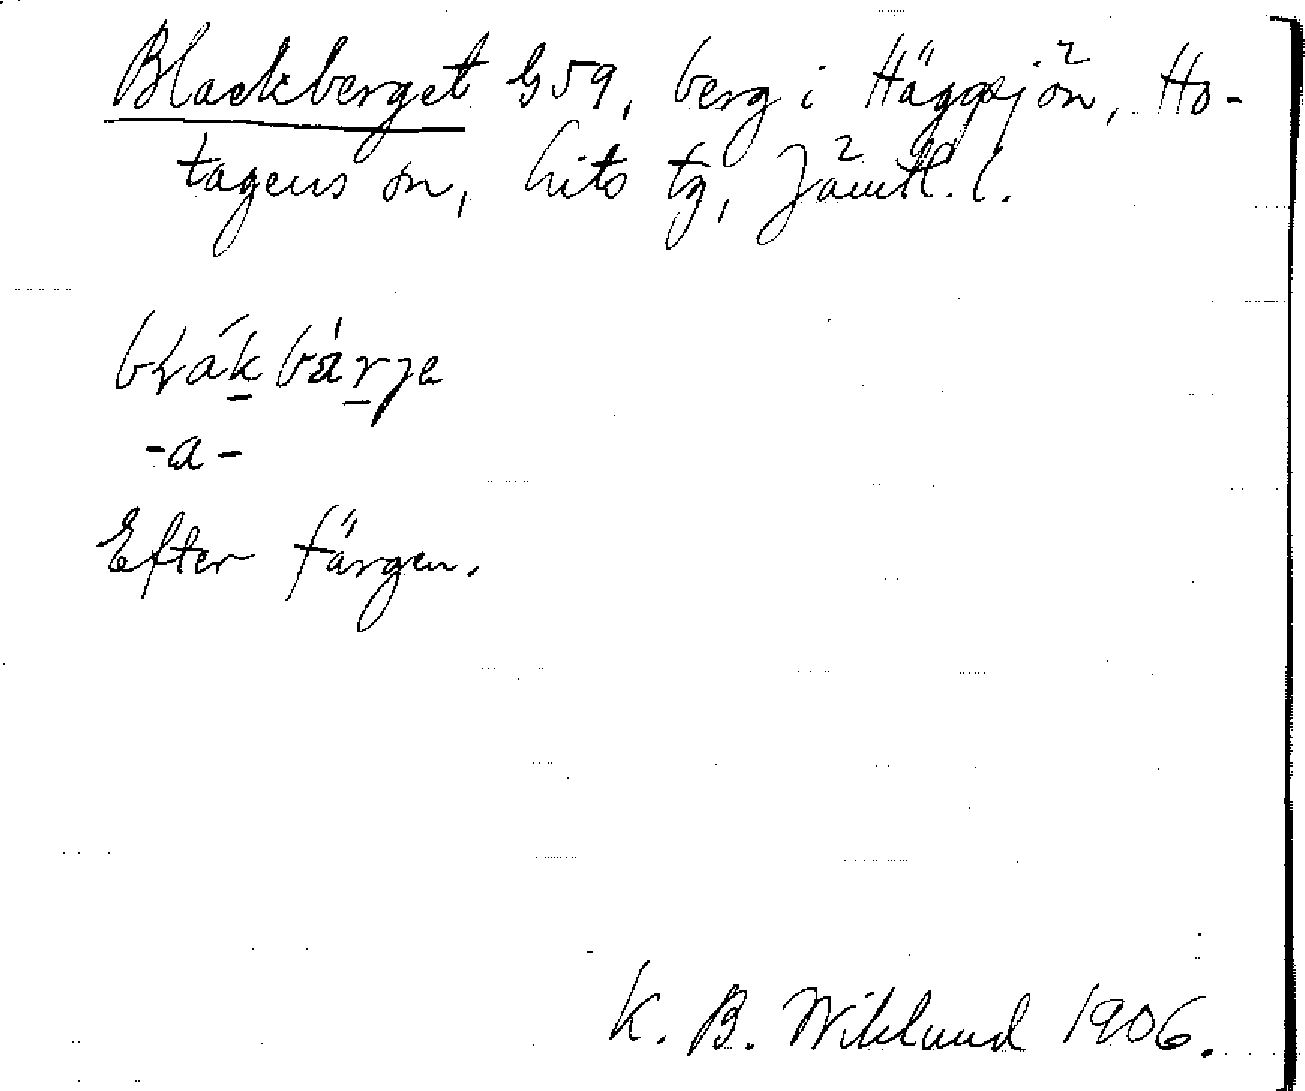 Blackberget G59, berg i Häggsjön, Ho-
tagens sn, Lits tg, Jämtl. l.
-a-
Efter färgen.
K. B. Wiklund 1906.